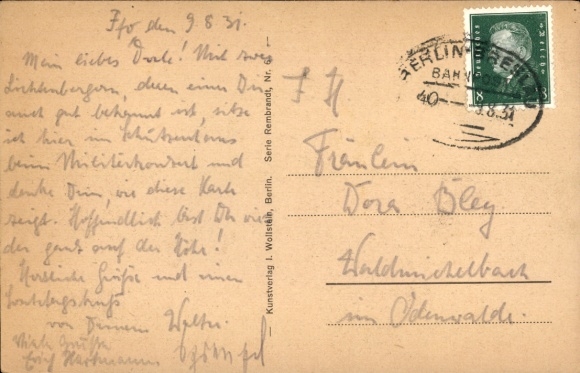 Ffo den 9 8 31.
Mein liebes Dorle! Mit zwei
Lichtenbergern, deren einer Dir
auch gut bekannt ist, sitze
ich hier im Schützenhaus
beim Militärkonzert und
denke Dein, wie diese Karte
zeigt. Hoffendlich bist Du wie-
der ganz auf der Höhe!
Herzliche Grüße und einen
von Deinem Walter.
Viele Grüße
Erich Hartmann
Kunstverlag J. Wollstein, Berlin. Serie Rembrandt, Nr. 6
Deutsches Reich
8
BERLIN-BRESLAU
BAHNPOST
9.8.31
Fräulein
Dora Bley
Waldmichelbach
im Odenwalde.